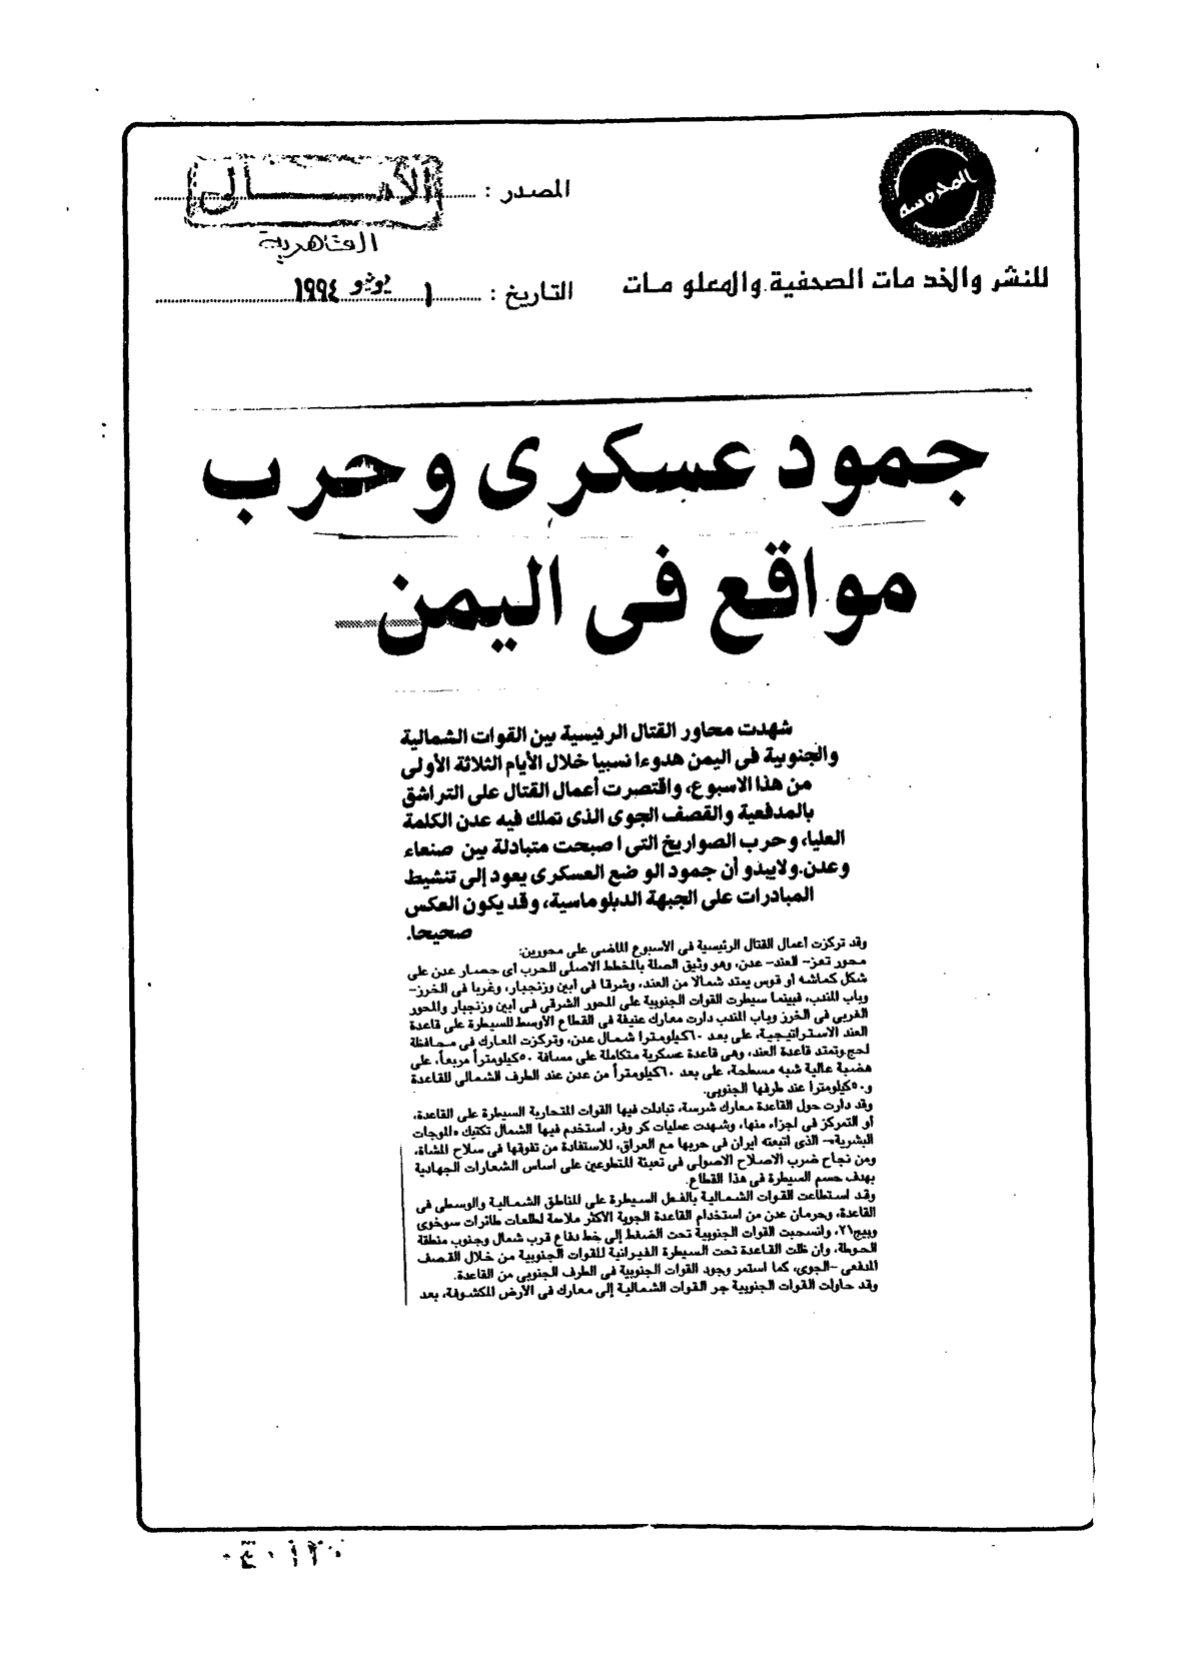 المحروسة
المصدر : الأهالى
القاهرية
للنشر والخدمات الصحفية والمعلومات
التاريخ : ١ يونيو ١٩٩٤
جمود عسكرى وحرب
مواقع فى اليمن
شهدت محاور القتال الرئيسية بين القوات الشمالية
والجنوبية فى اليمن هدوءا نسبيا خلال الأيام الثلاثة الأولى
من هذا الاسبوع، واقتصرت أعمال القتال على التراشق
بالمدفعية والقصف الجوى الذى تملك فيه عدن الكلمة
العليا، وحرب الصواريخ التى اصبحت متبادلة بين صنعاء
وعدن. ولايبدو أن جمود الوضع العسكرى يعود إلى تنشيط
المبادرات على الجبهة الدبلوماسية، وقد يكون العكس
صحيحا.
وقد تركزت أعمال القتال الرئيسية فى الأسبوع الماضى على محورين:
محور تعز- العند- عدن، وهو وثيق الصلة بالمخطط الاصلى للحرب اى حصار عدن على
شكل كماشه أو قوس يمتد شمالا من العند، وشرقا فى أبين وزنجبار، وغربا فى الخرز-
وباب المندب، فبينما سيطرت القوات الجنوبية على المحور الشرقى فى ابين وزنجبار والمحور
الغربى فى الخرز وباب المندب دارت معارك عنيفة فى القطاع الأوسط للسيطرة على قاعدة
العند الاستراتيجية، على بعد ٦٠كيلومترا شمال عدن، وتركزت المعارك فى محافظة
لحج وتمتد قاعدة العند، وهى قاعدة عسكرية متكاملة على مسافة ٥٠كيلومترا مربعاً، على
هضبة عالية شبه مسطحة، على بعد ٦٠كيلومتراً من عدن عند الطرف الشمالى للقاعدة
و٥٠كيلومترا عند طرفها الجنوبى.
وقد دارت حول القاعدة معارك شرسة، تبادلت فيها القوات المتحاربة السيطرة على القاعدة،
أو التمركز فى اجزاء منها، وشهدت عمليات كر وفر، استخدم فيها الشمال تكتيك «الموجات
البشرية»- الذى اتبعته ايران فى حربها مع العراق، للاستفادة من تفوقها فى سلاح المشاة،
ومن نجاح ضرب الاصلاح الاصولى فى تعبئة المتطوعين على اساس الشعارات الجهادية
بهدف حسم السيطرة فى هذا القطاع.
وقد استطاعت القوات الشمالية بالفعل السيطرة على المناطق الشمالية والوسطى فى
القاعدة، وحرمان عدن من استخدام القاعدة الجوية الاكثر ملاءمة لطلعات طائرات سوخوى
وميج٢١، وانسحبت القوات الجنوبية تحت الضغط إلى خط دفاع قرب شمال وجنوب منطقة
الحوطة، وان ظلت القاعدة تحت السيطرة النيرانية للقوات الجنوبية من خلال القصف
المدفعى -الجوى، كما استمر وجود القوات الجنوبية فى الطرف الجنوبى من القاعدة.
وقد حاولت القوات الجنوبية جر القوات الشمالية إلى معارك فى الأرض المكشوفة، بعد